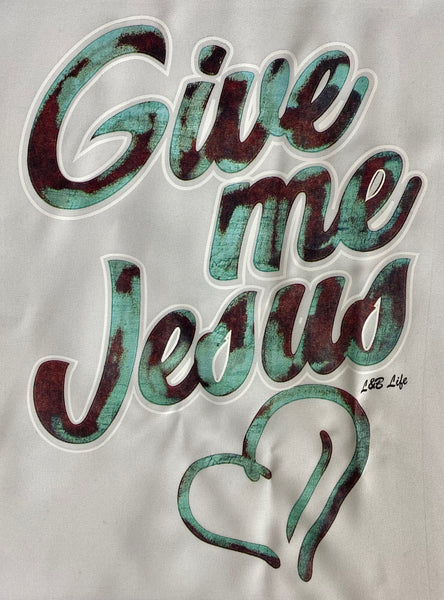 Give
me
Jesus
L&B Life